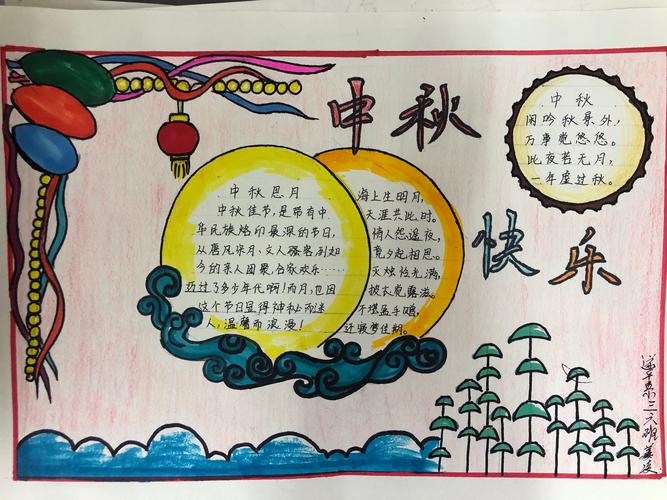 中秋
快乐
中秋思月
中秋佳节,是带有中
华民族烙印最深的节日,
从唐风宋月、文人骚客到如
今的亲人团聚、合家欢乐……
历过了多少年代啊!而月,也因
这个节日显得神秘而迷
人,温馨而浪漫!
海上生明月,
天涯共此时。
情人怨遥夜,
竟夕起相思。
灭烛怜光满,
披衣觉露滋。
不堪盈手赠,
还寝梦佳期。
中秋
闲吟秋景外,
万事觉悠悠。
此夜若无月,
一年虚过秋。
三六班